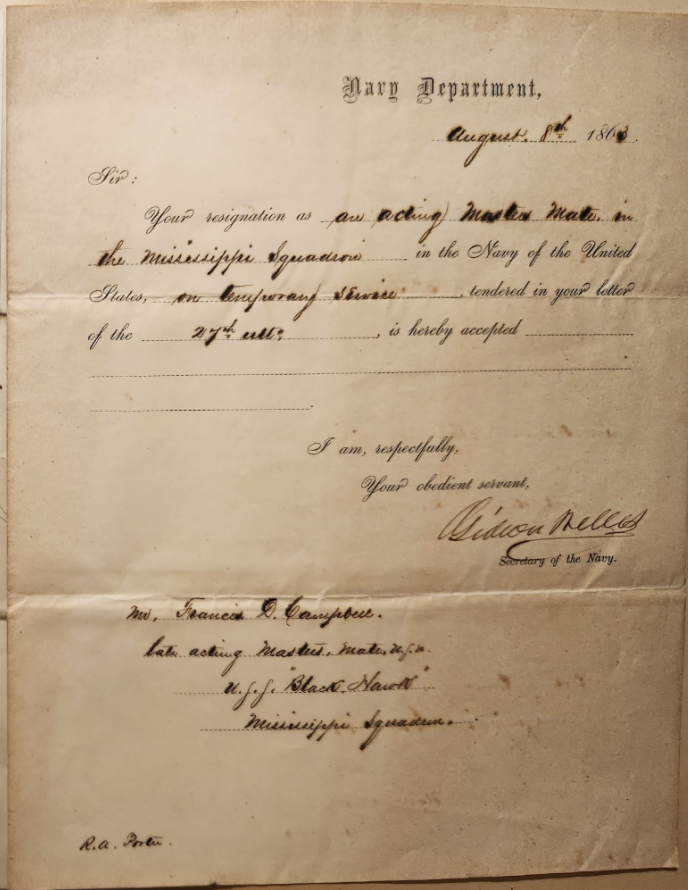 Navy Department,
August 8th 1863.
Sir:
Your resignation as an acting Masters Mate, in
the Mississippi Squadron in the Navy of the United
States, on temporary service, tendered in your letter
of the 27th ulto, is hereby accepted
I am, respectfully,
Your obedient servant,
Gideon Welles
Secretary of the Navy.
Mr. Francis D. Campbell.
late acting Masters, Mate, U.S.N.
U.S.S. "Black Hawk"
Mississippi Squadron.
R.A. Porter.